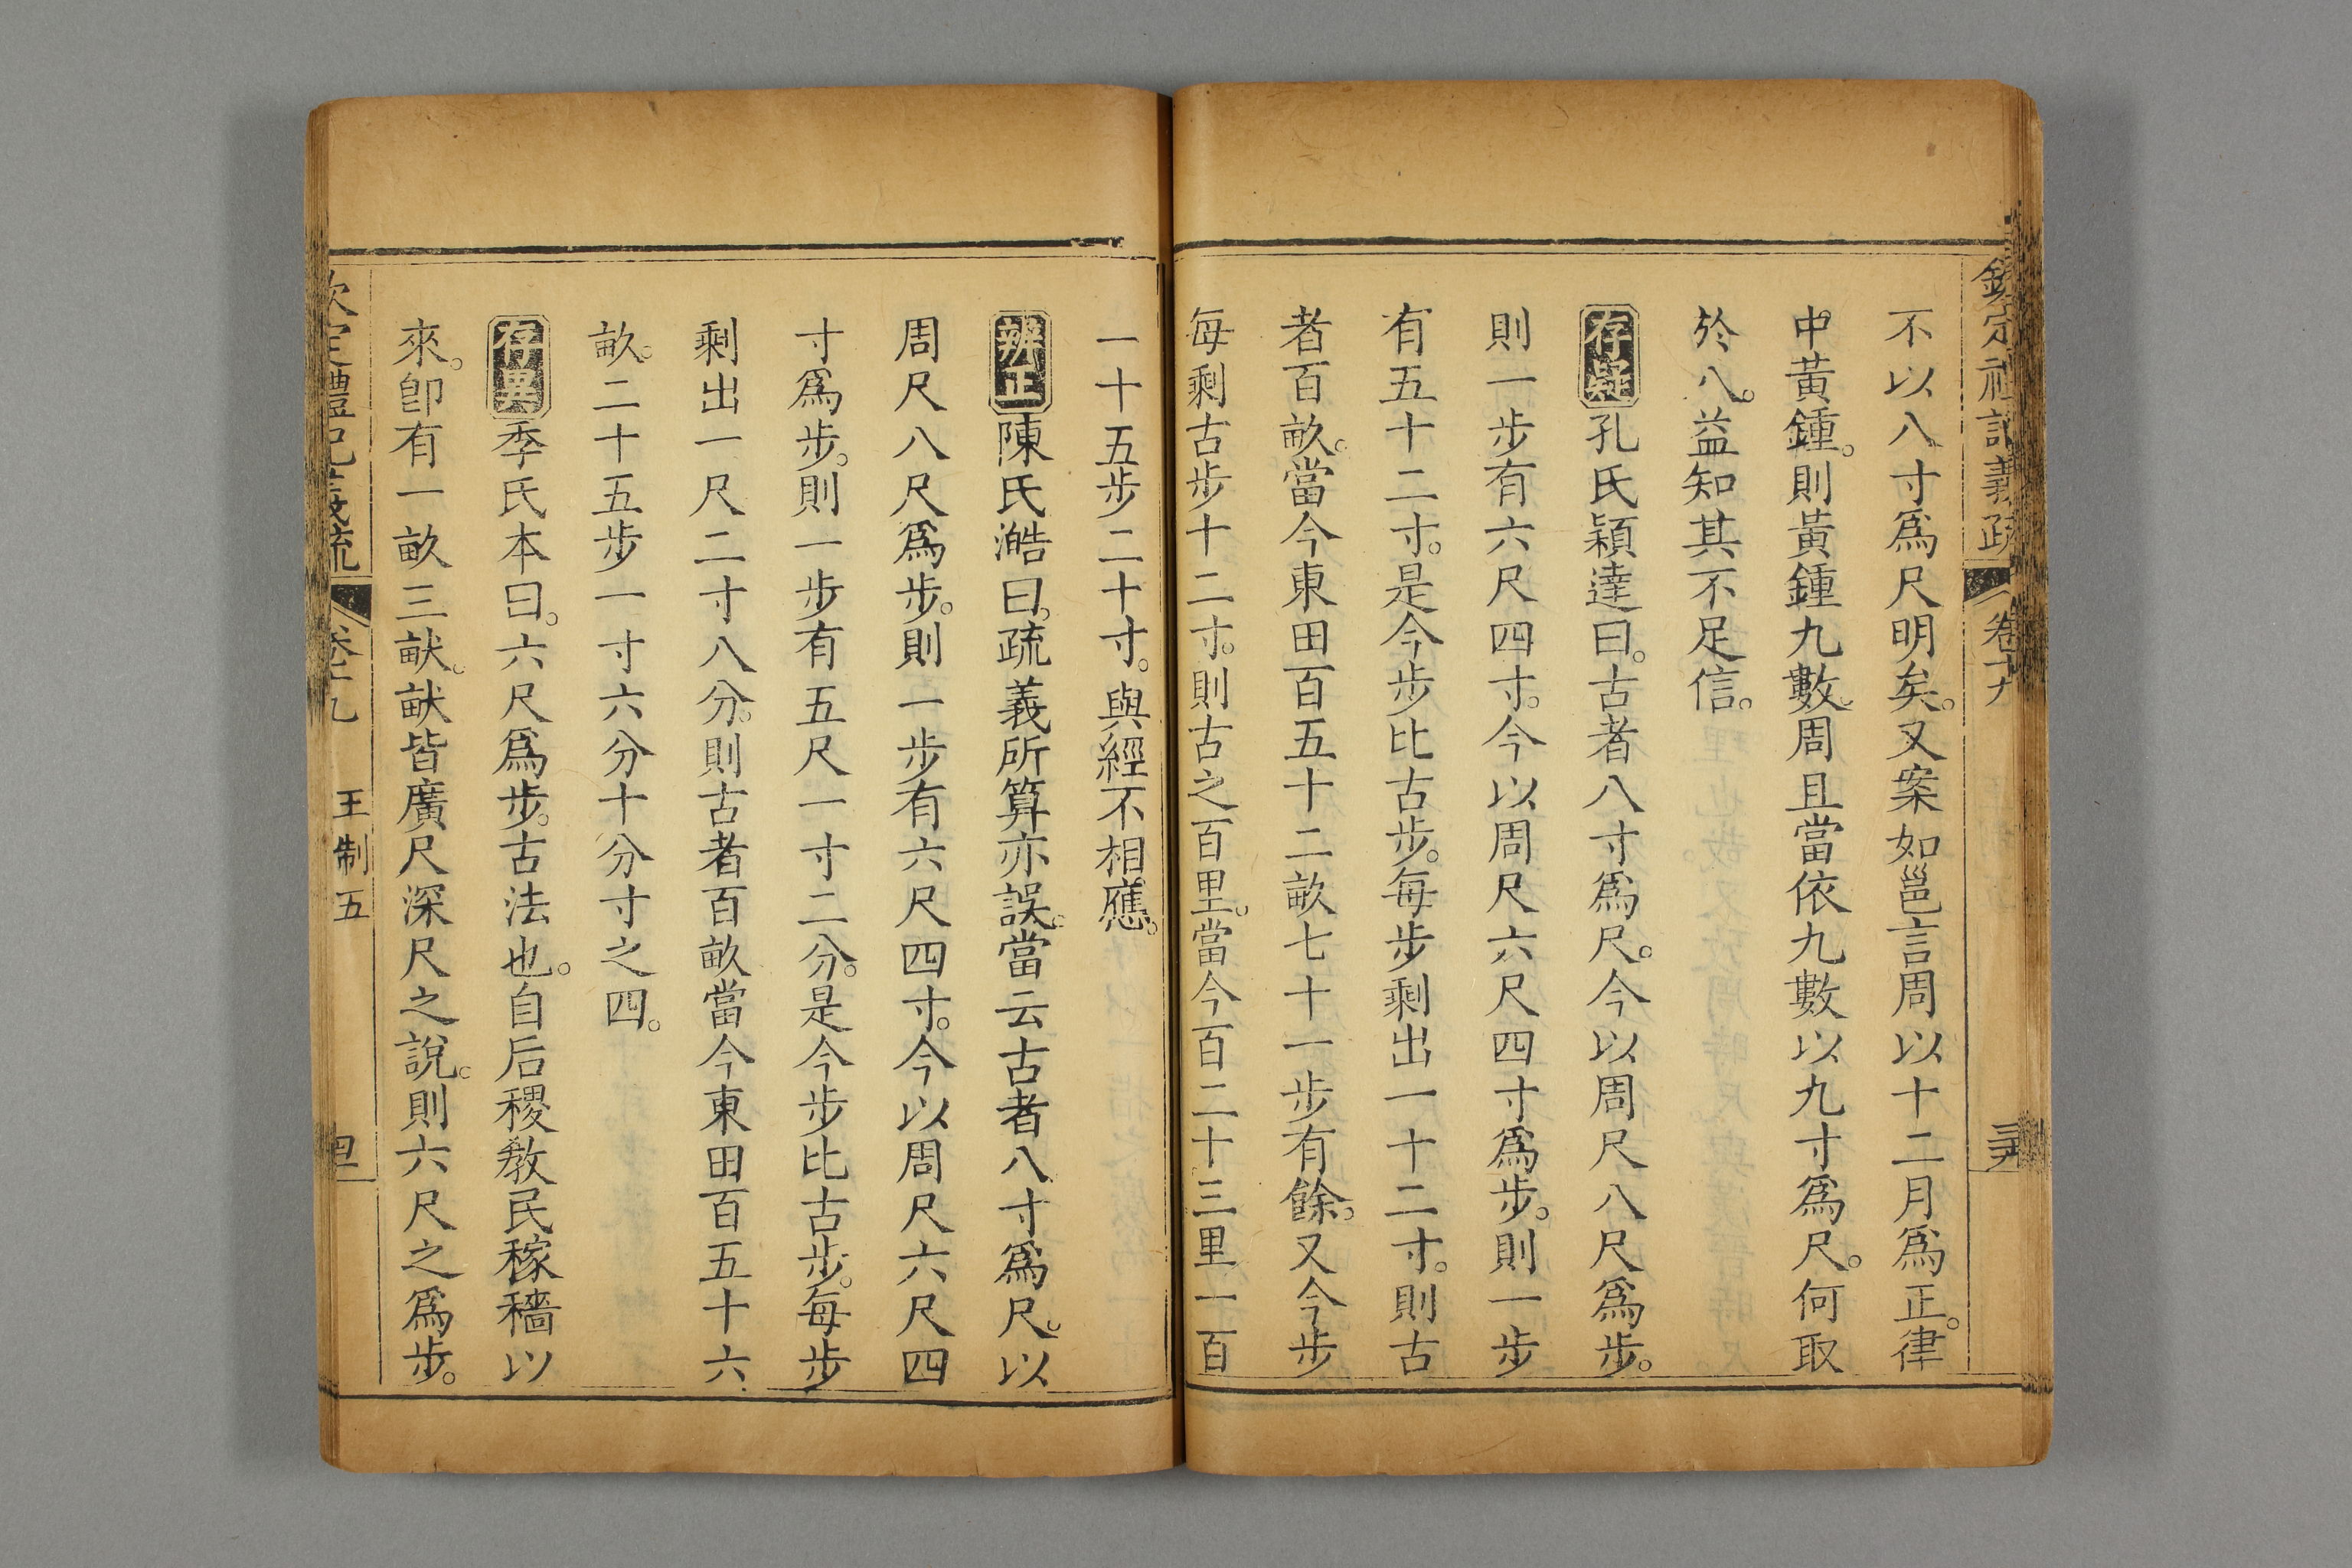 欽定禮記義疏 卷十九
不以八寸爲尺明矣。又案如邕言周以十二月爲正。律
中黃鍾。則黃鍾九數。周且當依九數以九寸爲尺。何取
於八。益知其不足信。
存疑孔氏穎達曰。古者八寸爲尺。今以周尺八尺爲步。
則一步有六尺四寸。今以周尺六尺四寸爲步。則一步
有五十二寸。是今步比古步。每步剩出一十二寸。則古
者百畝。當今東田百五十二畝七十一步有餘。又今步
每剩古步十二寸。則古之百里。當今百二十三里一百
一十五步二十寸。與經不相應。
辨正陳氏澔曰。疏義所算亦誤。當云古者八寸爲尺。以
周尺八尺爲步。則一步有六尺四寸。今以周尺六尺四
寸爲步。則一步有五尺一寸二分。是今步比古步。每步
剩出一尺二寸八分。則古者百畝當今東田百五十六
畝。二十五步一寸六分十分寸之四。
存異季氏本曰。六尺爲步。古法也。自后稷敎民稼穡以
來。卽有一畝三畎。畎皆廣尺深尺之說。則六尺之爲步。
欽定禮記義疏 卷十九 王制五